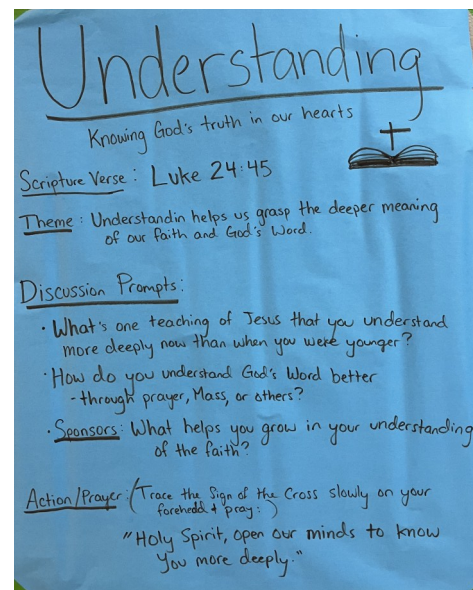 Understanding
Knowing God's truth in our hearts
Scripture Verse: Luke 24:45
Theme: Understandin helps us grasp the deeper meaning
of our faith and God's Word.
Discussion Prompts:
· What's one teaching of Jesus that you understand
more deeply now than when you were younger?
· How do you understand God's Word better
- through prayer, Mass, or others?
· Sponsors: What helps you grow in your understanding
of the faith?
Action/Prayer: (Trace the Sign of the Cross slowly on your
forehead + pray:)
"Holy Spirit, open our minds to know
You more deeply."